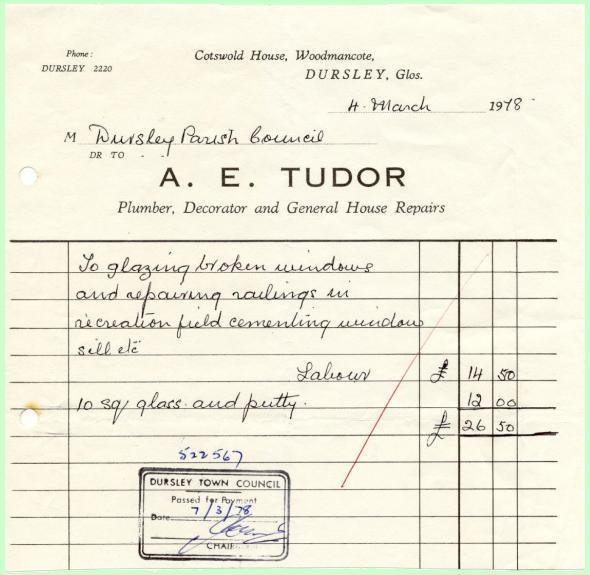 Phone:
DURSLEY 2220
Cotswold House, Woodmancote,
DURSLEY, Glos.
4. March 1978
M Dursley Parish Council
DR TO
A. E. TUDOR
Plumber, Decorator and General House Repairs
To glazing broken windows
and repairing railings in
recreation field cementing window
sill etc
Labour £ 14 50
10 sq/ glass. and putty. 12 00
£ 26 50
522567
DURSLEY TOWN COUNCIL
Passed for Payment
Date 7/3/78